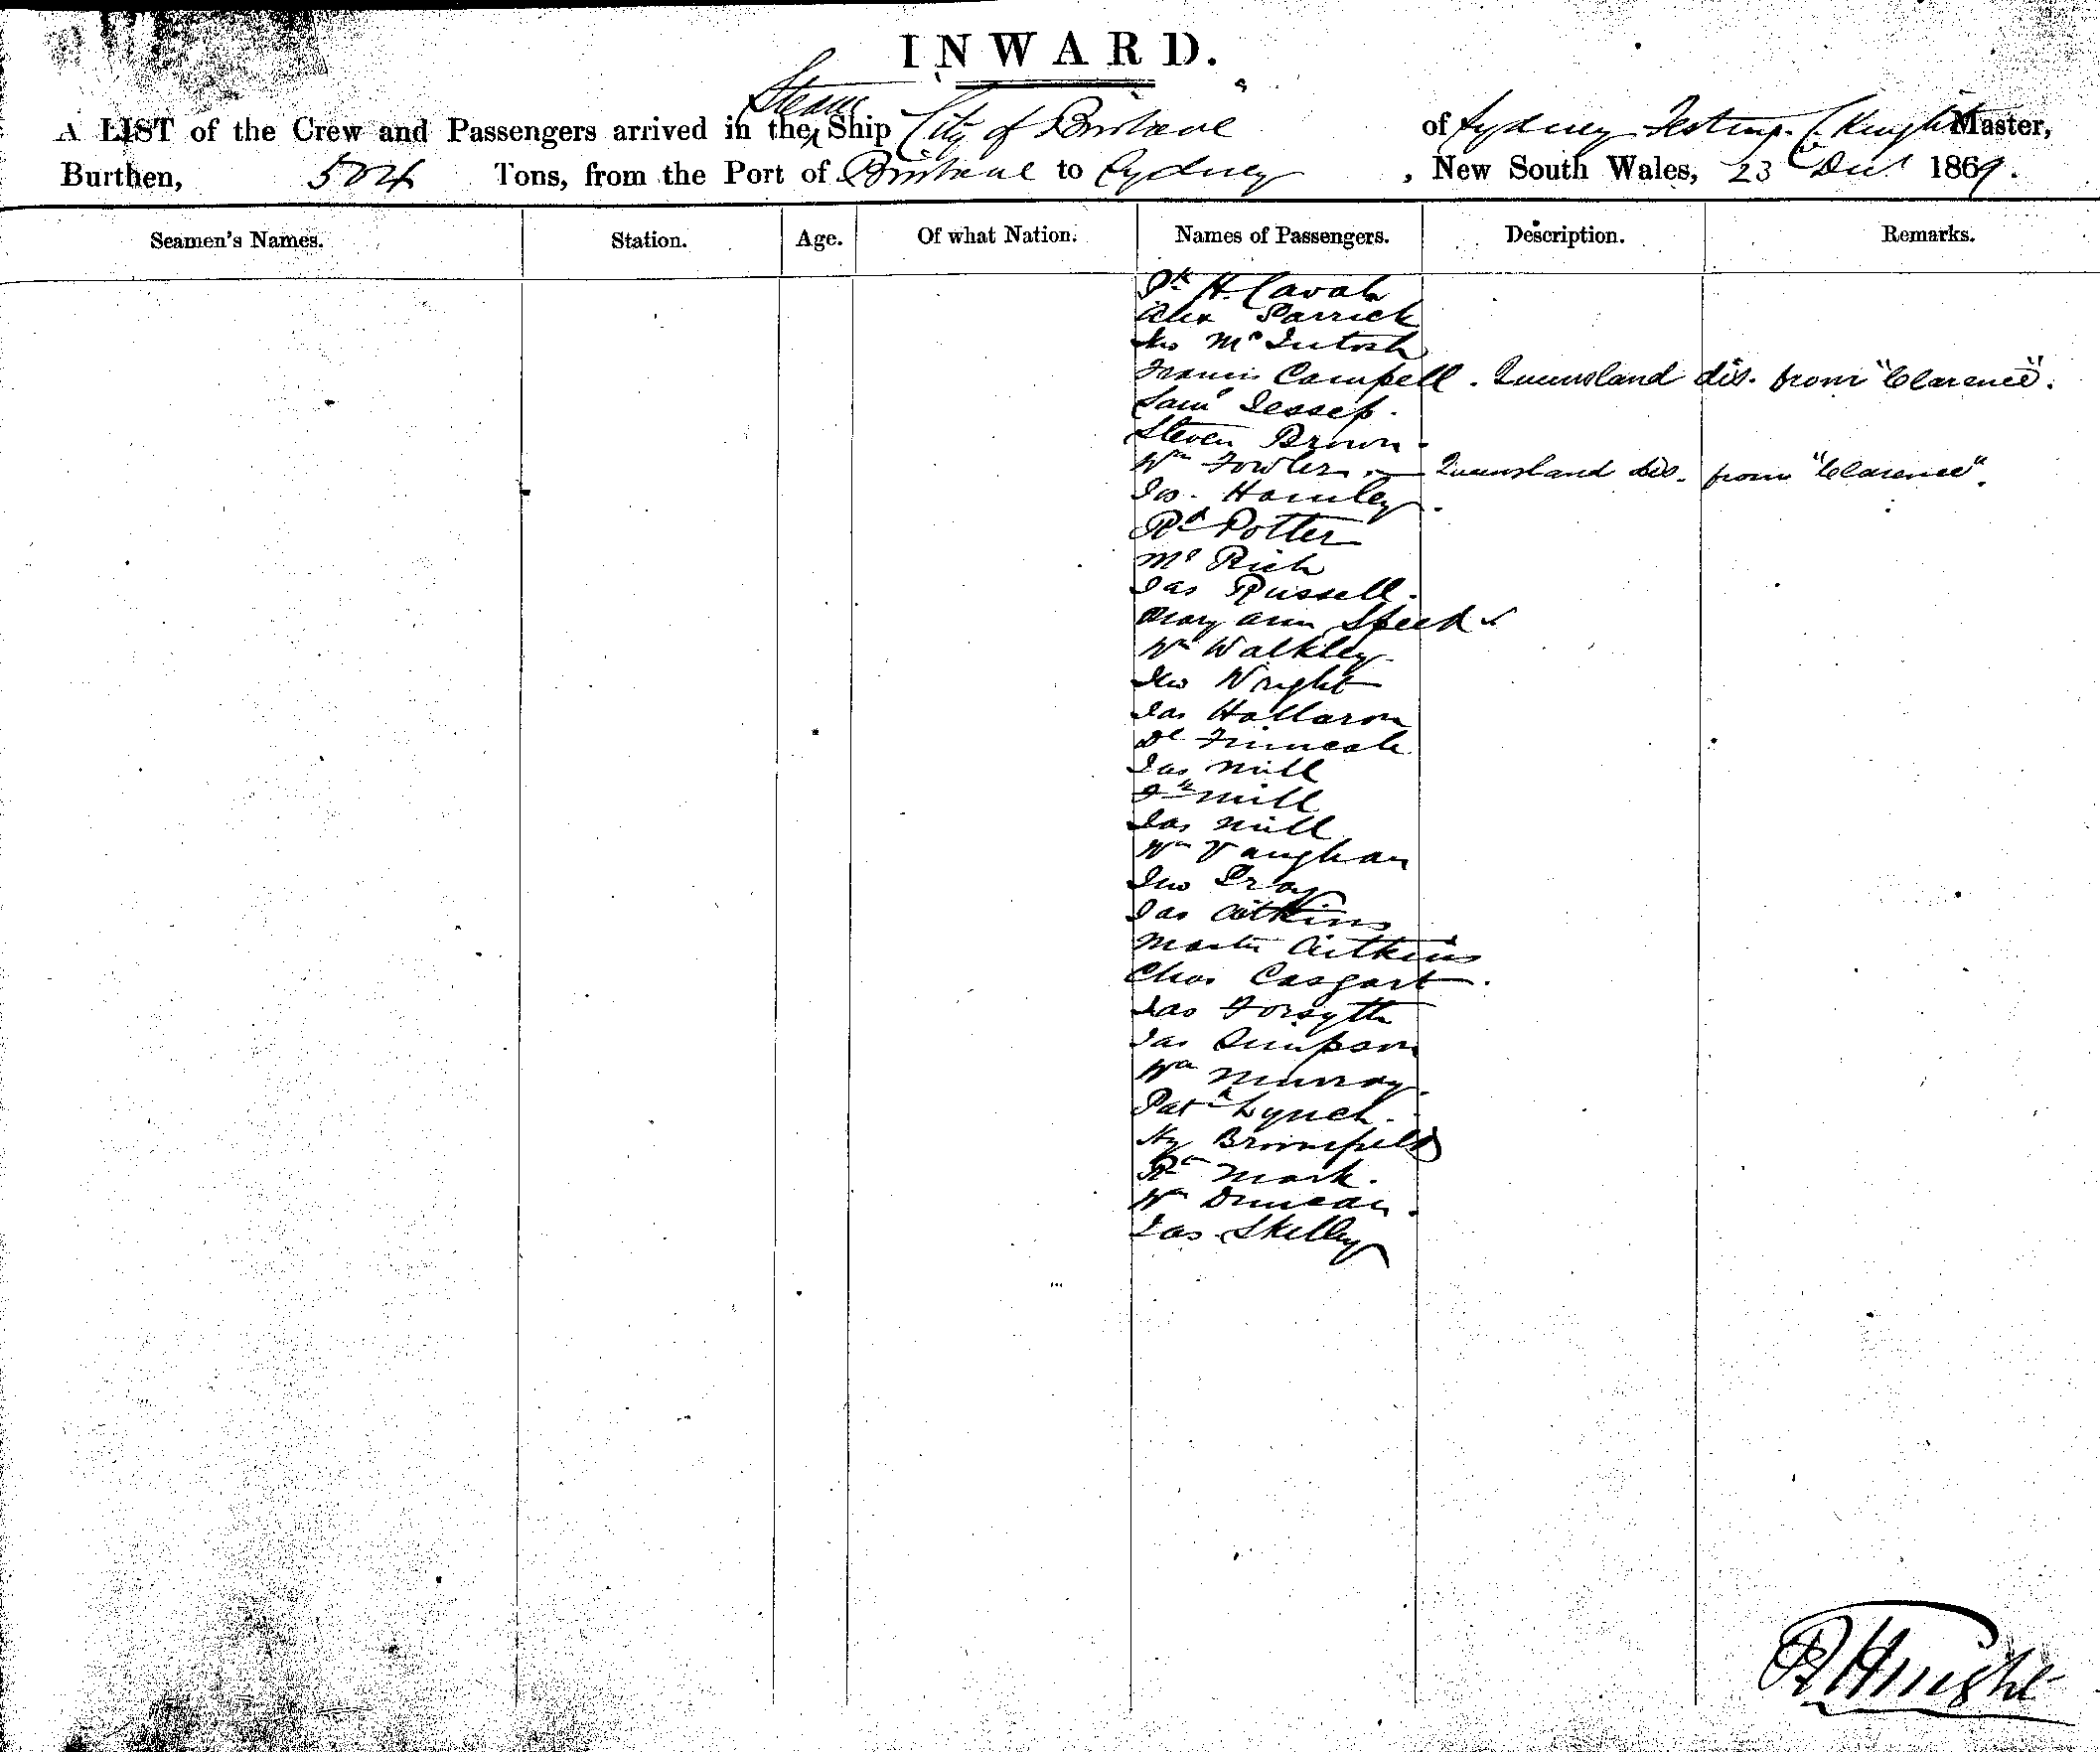 INWARD.
A LIST of the Crew and Passengers arrived in the Steam Ship City of Brisbane of Sydney Knight Master,
Burthen, 504 Tons, from the Port of Brisbane to Sydney, New South Wales, 23 Decr 1869.
Seamen's Names. Station. Age. Of what Nation. Names of Passengers. Description. Remarks.
Pk H.
Alex
Jno McIntosh
Francis Campell. Queensland dis. from "Clarence".
Saml Jessep.
Steven Brown.
Wm Fowler. — Queensland dis. from "Clarence".
Hamley.
Rd Potter
Mr Rich
Jas Russell.
Mary Ann Speed
Wm Walkley
Jno Wright
Jas Hallaron
Dl
Jas Mill
Mill
Jas Mill
Wm Vaughan
Jno
Jas Aitkins
Martin Aitkins
Chas Casgart.
Jas Forsyth
Jas Simpson
Wm Murray.
Patk Lynch.
Hy Bromfield
Mark.
Wm Duncan.
Jas Skelley
Knight